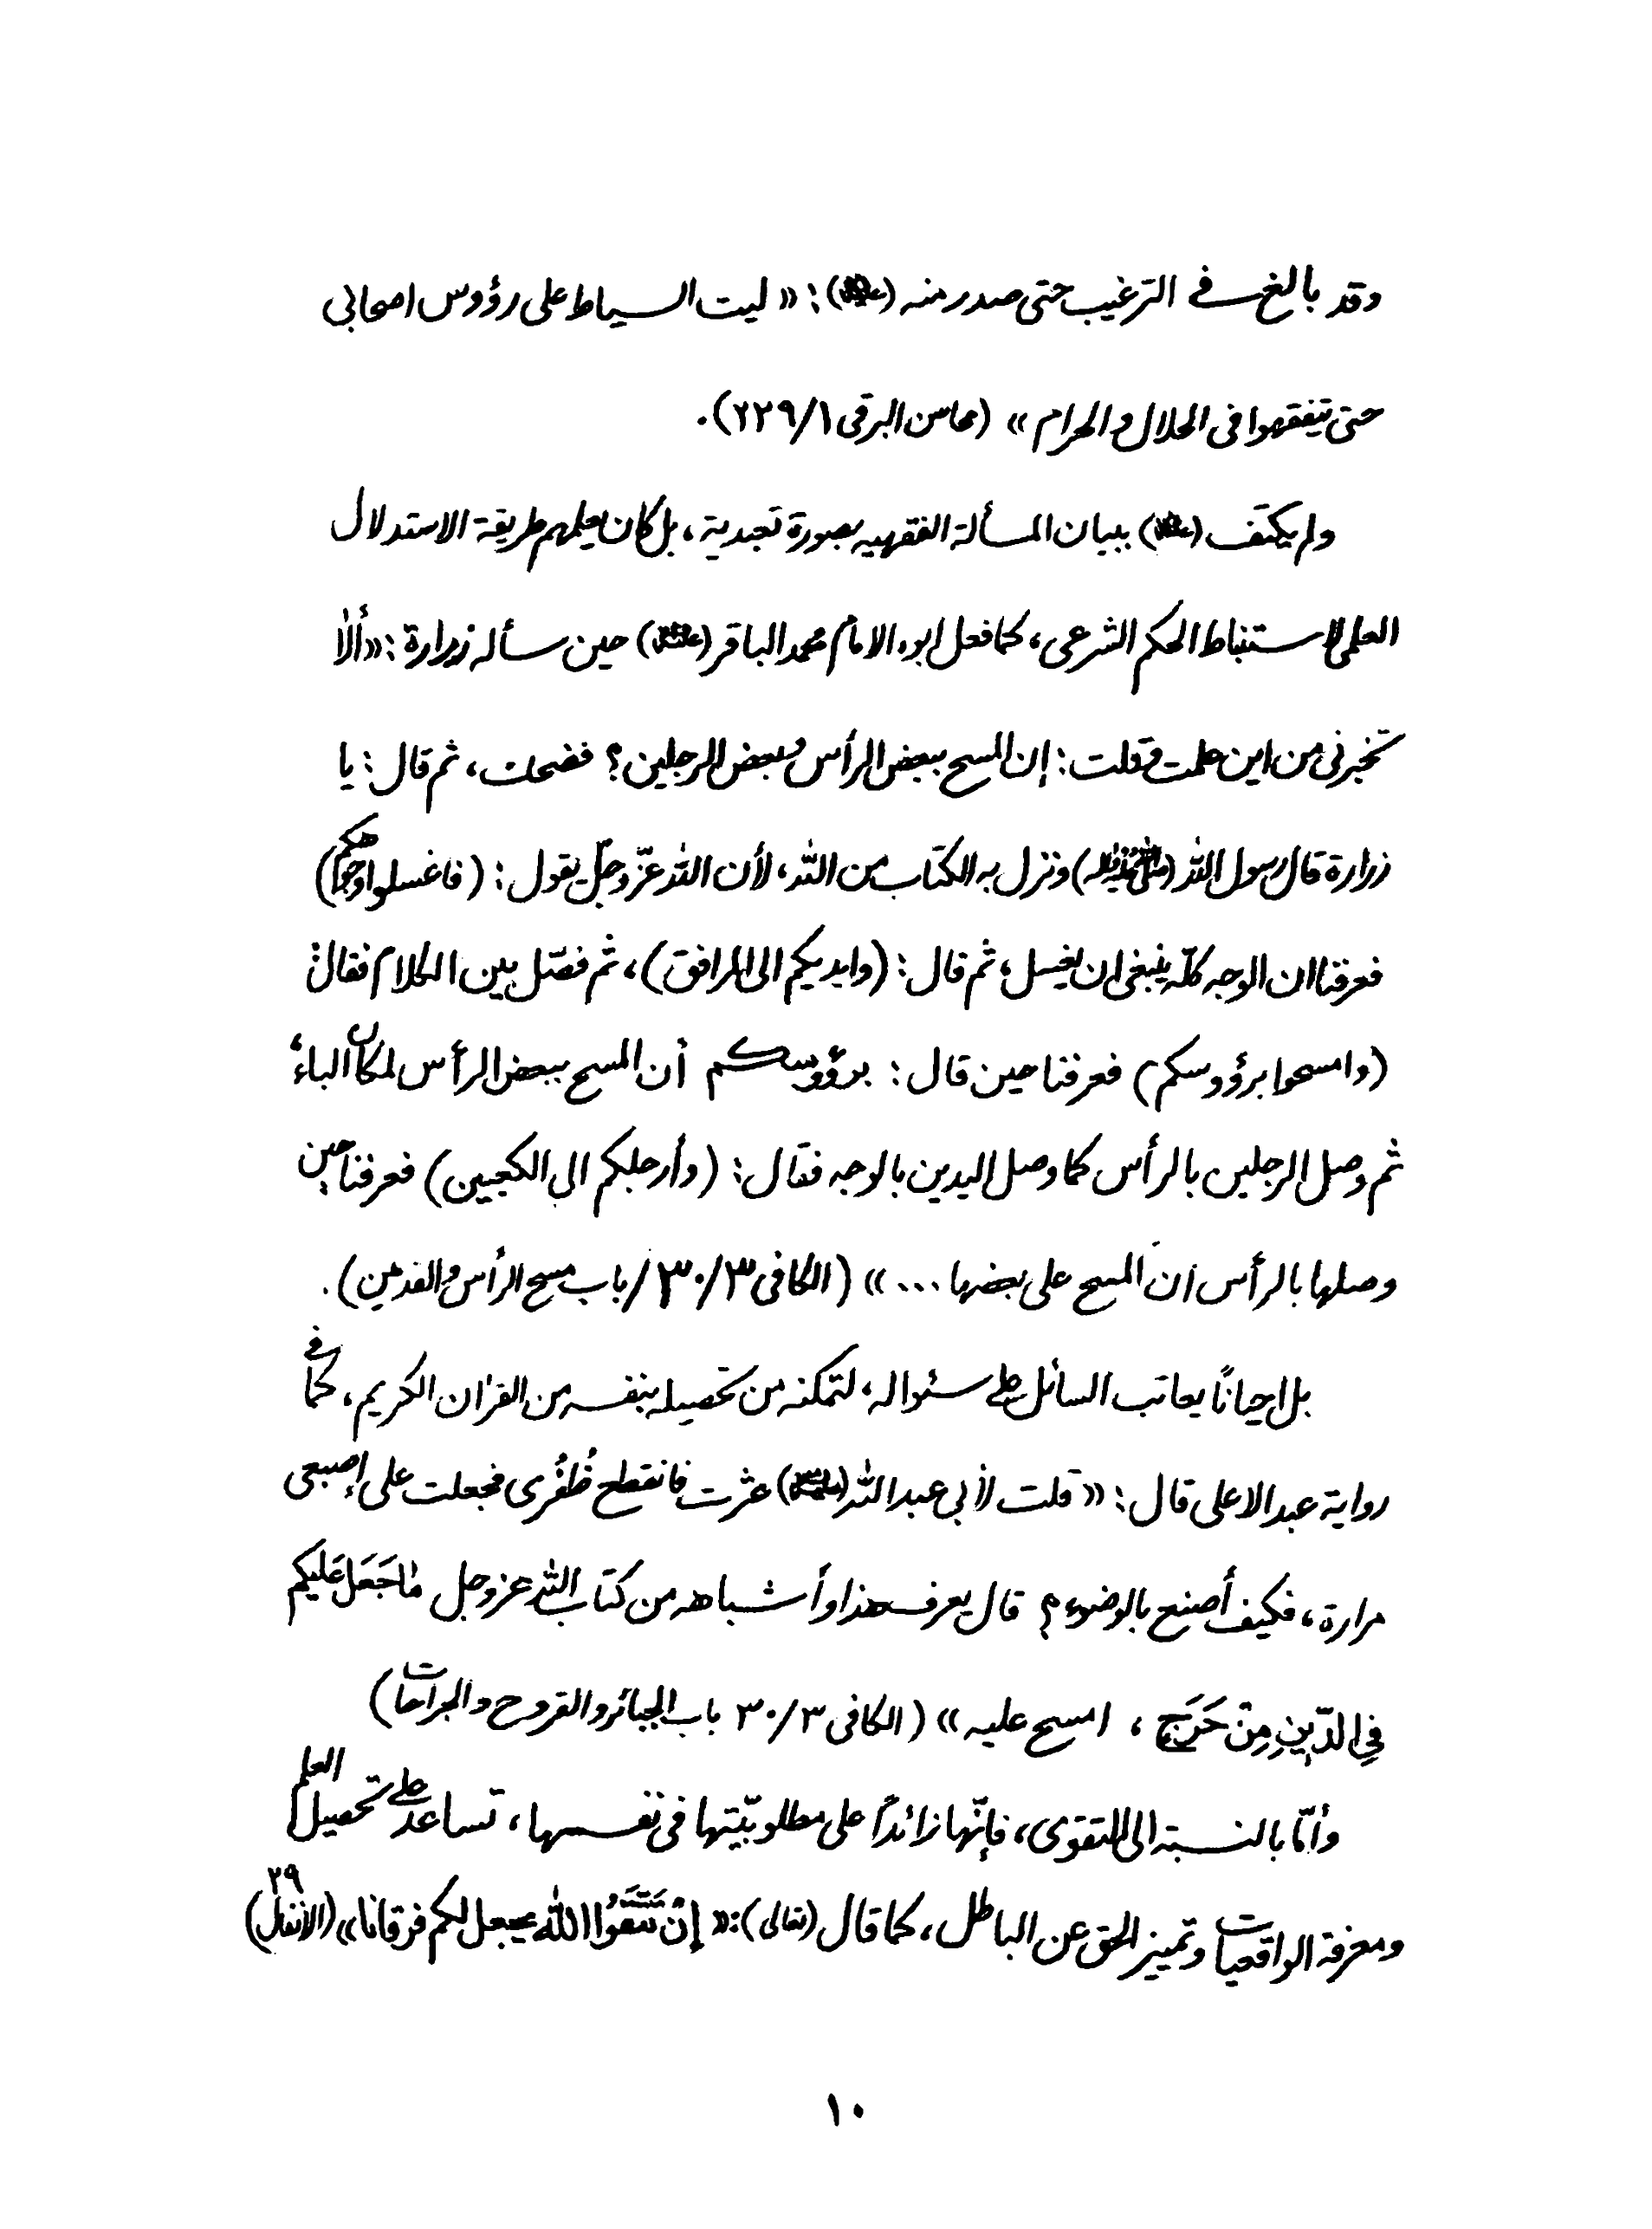 وقد بالغ في الترغيب حتى صدر منه (عليه السلام): «ليت السياط على رؤوس اصحابي
حتى يتفقهوا في الحلال والحرام» (محاسن البرقى ١/٢٢٩).
ولم يكتف (عليه السلام) ببيان المسألة الفقهيه بصورة تعبدية، بل كان يعلمهم طريقة الاستدلال
العلمي لاستنباط الحكم الشرعى، كما فعل ابوه الامام محمد الباقر (عليه السلام) حين سأله زرارة: «ألا
تخبرنى من اين علمت وقلت: إن المسح ببعض الرأس وببعض الرجلين؟ فضحك، ثم قال: يا
زرارة قال رسول الله (صلى الله عليه وآله) ونزل به الكتاب من الله، لأن الله عزّ وجلّ يقول: (فاغسلوا وجوهكم)
فعرفنا ان الوجه كلّه ينبغى ان يغسل، ثم قال: (وايديكم الى المرافق)، ثم فصّل بين الكلام فقال:
(وامسحوا برؤوسكم) فعرفنا حين قال: برؤوسكم أن المسح ببعض الرأس لمكان الباء،
ثم وصل الرجلين بالرأس كما وصل اليدين بالوجه فقال: (وأرجلكم الى الكعبين) فعرفنا حين
وصلها بالرأس أن المسح على بعضها ...» (الكافى ٣/٣٠/باب مسح الرأس والقدمين).
بل احيانًا يعاتب السائل على سئواله، لتمكنه من تحصيله بنفسه من القرٰان الكريم، كما في
رواية عبد الاعلى قال: «قلت لأبي عبد الله (عليه السلام) عثرت فانقطع ظُفُرى فجعلت على إصبعى
مرارة، فكيف أصنع بالوضوء؟ قال يعرف هذا وأشباهه من كتاب الله عز وجل مٰا جَعَلَ عَلَيكم
فِي الدّينِ مِنْ حَرَجٍ، امسح عليه» (الكافى ٣/٣٠ باب الجبائر والقروح والجراحات)
وأمّا بالنسبة الى التقوى، فإنّها زائداً على مطلوبيّتها في نفسها، تساعد على تحصيل العلم
ومعرفة الواقعيات وتمييز الحق عن الباطل، كما قال (تعالى): «إنْ تَتَّقُوا اللّٰه يجعل لكم فرقانا» (الأنفال ٢٩)
١٠